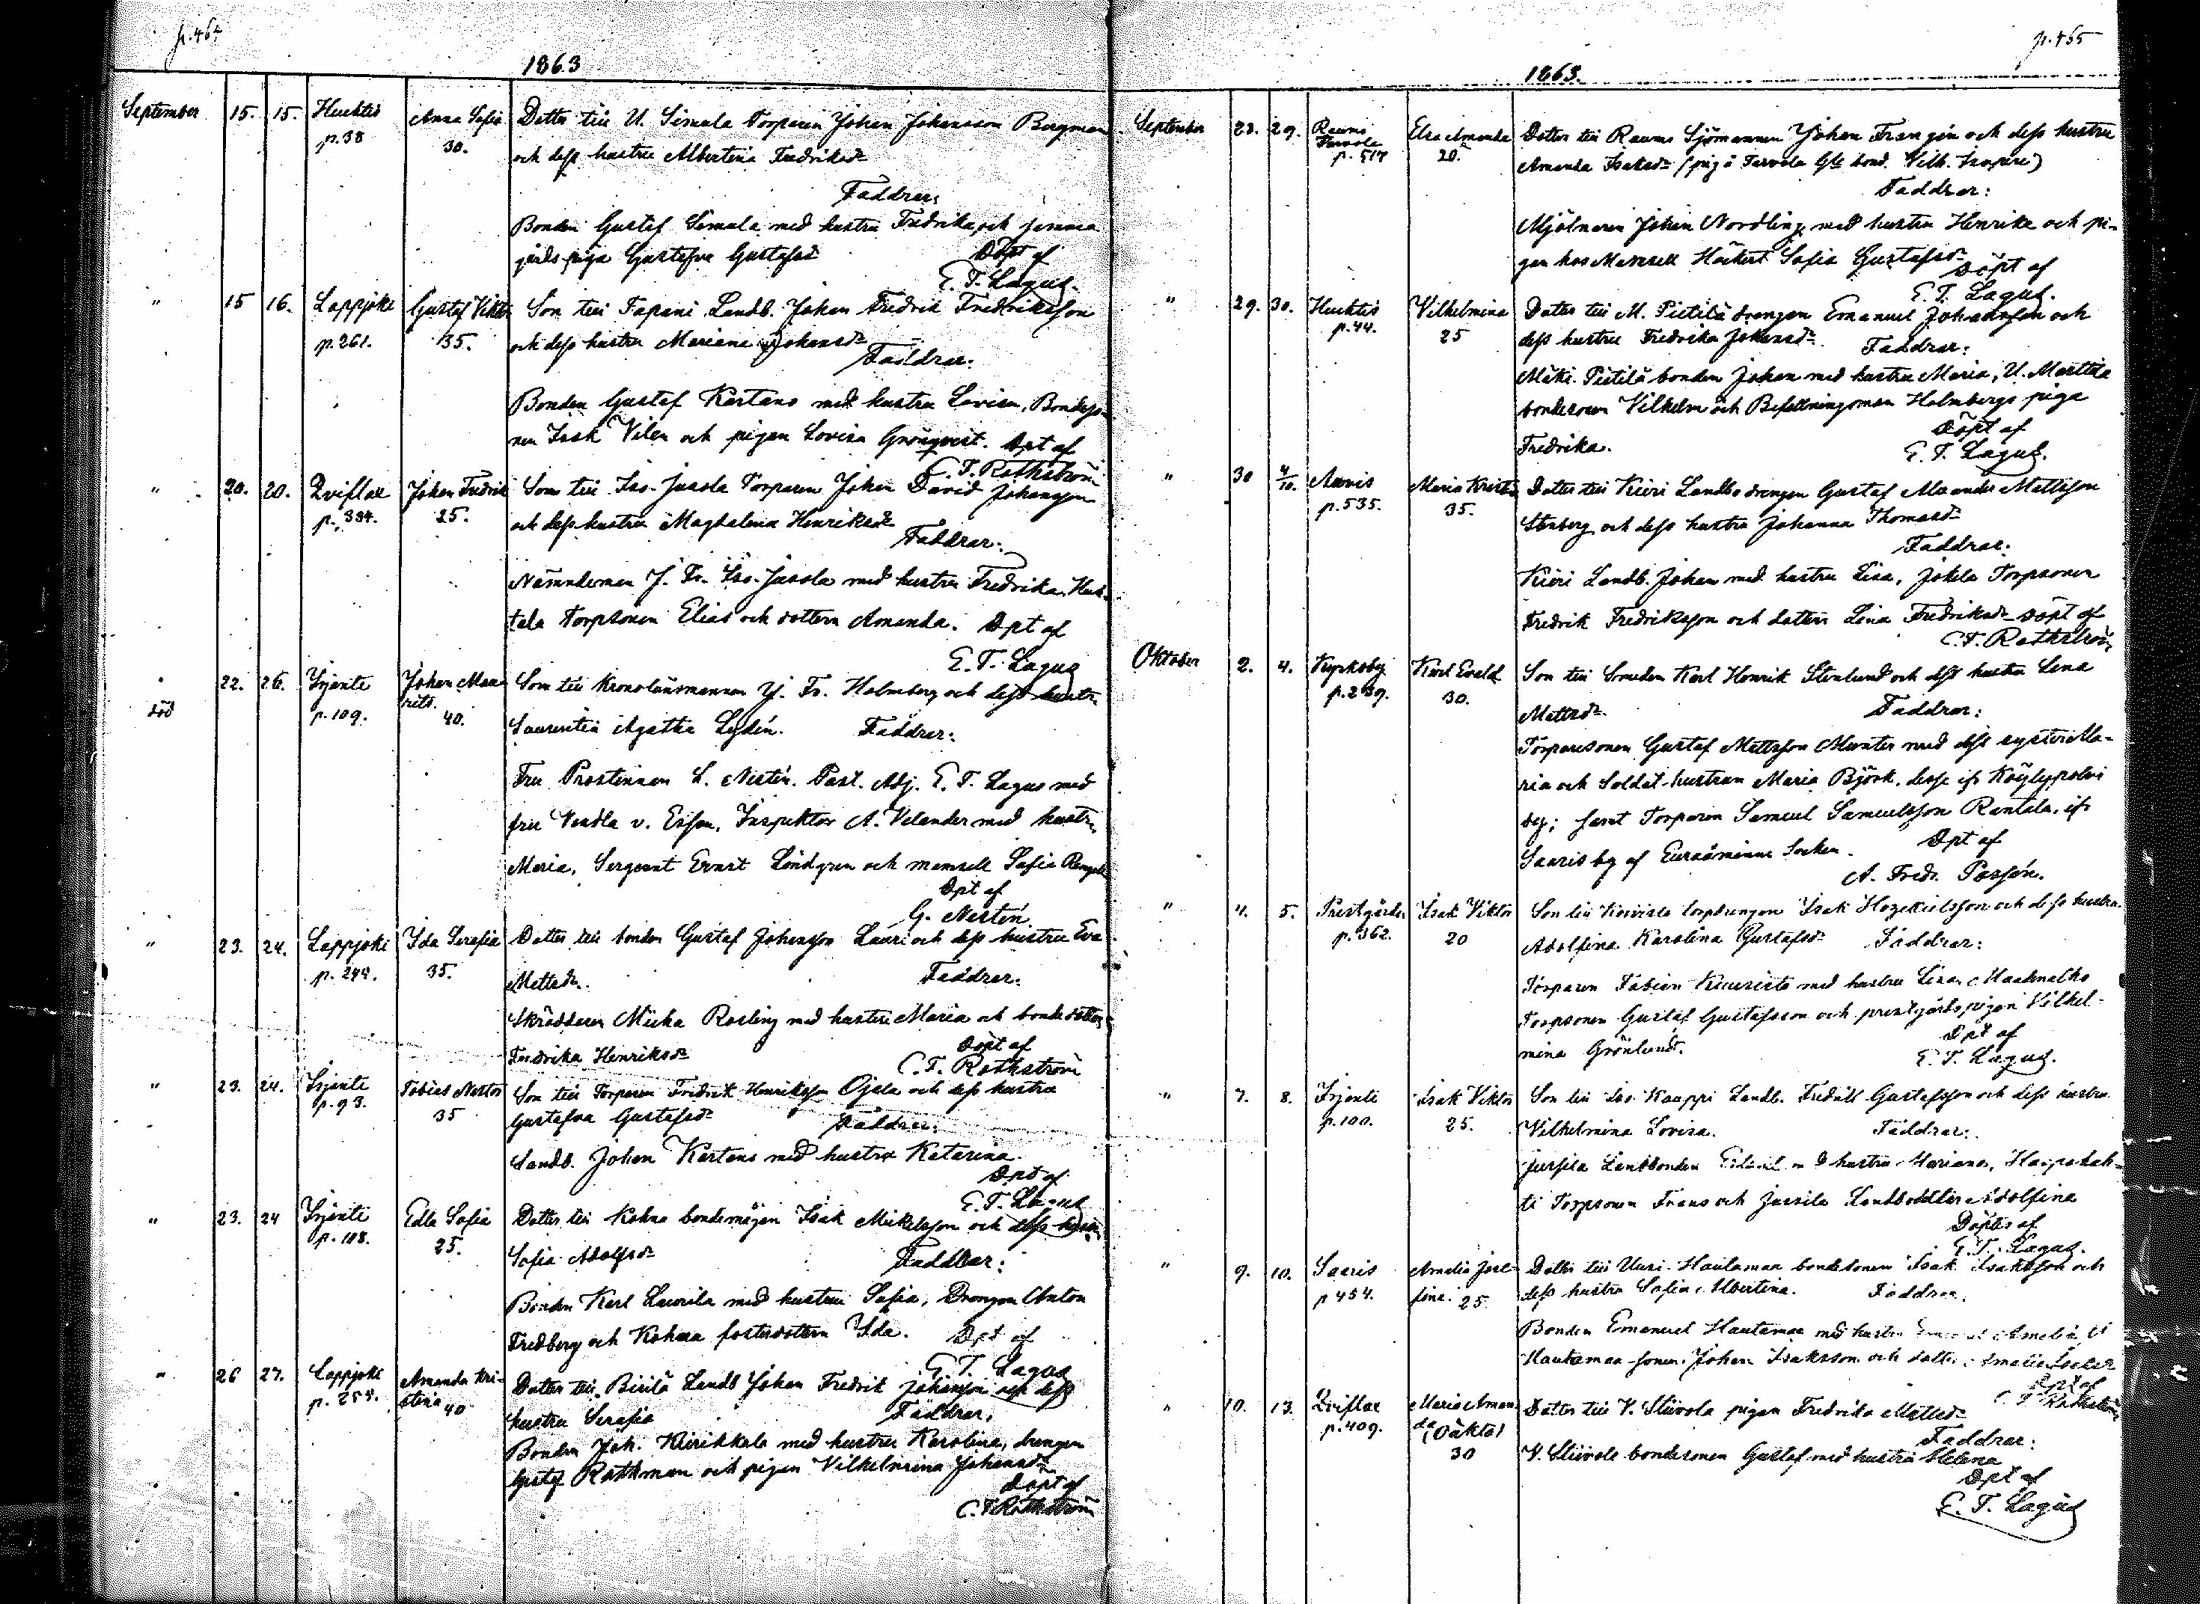 p. 464
1863
September 15. 15. Huchtis Anna Sofia Dotter till U. Simula Torparen Johan Johansson Bergman
p. 38 30. och dess hustru Albertina Fredriksdr
Faddrar:
Bonden Gustaf Simula med hustru Fredrika och samma
gårds piga Gustafva Gustafsdr Döpt af
E. T. Lagus.
" 15 16. Lappjoki Gustaf Viktor Son till Tapani Landb. Johan Fredrik Fredriksson
p. 261. 35. och dess hustru Mariana Johansdr
Faddrar:
Bonden Gustaf Kartano med hustru Lovisa, Bondeso-
nen Isak Vilen och pigan Lovisa Grönqvist. Dpt af
C. F. Rothström
" 20. 20. Qviflax Johan Fredrik Son till Iso-Jaasla Torparen Johan David Johansson
p. 334. 25. och dess hustru Magdalena Henriksdr
Faddrar:
Nämndeman J. Fr. Iso-Jaasla med hustru Fredrika,
tala Torpsonen Elias och dottern Amanda. Dpt af
E. T. Lagus
" 22. 26. Irjante Johan Mau- Son till Kronolänsmannen J. Fr. Holmberg och dess hustru
död p. 109. ritz. 40. Laurentia Agatha Lydén. Faddrar:
Fru Prostinnan L. Nestén. Past. Adj. E. T. Lagus med
fru Vendla v. Essen, Inspektor A. Velander med hustru
Maria, Sergeant Ernst Lindgren och mamsell Sofia
Dpt af
G. Nestén
" 23. 24. Lappjoki Ida Serafia Dotter till bonden Gustaf Johansson Lauri och dess hustru Eva
p. 244. 35. Mattsdr. Faddrar:
Skräddaren Micka Rosling med hustru Maria och bondedottern
Fredrika Henriksdr Döpt af
C. F. Rothström
" 23. 24. Irjante Tobias Nestor Son till Torparen Fredrik Henriksson Ojala och dess hustru
p. 93. 35 Gustafva Gustafsdr Faddrar:
Landb. Johan Kartano med hustru Katarina.
Dpt af
E. T. Lagus
" 23. 24 Irjante Edla Sofia Dotter till Kohna bondemågen Isak Mickelsson och dess hustru
p. 108. 25. Sofia Adolfsdr Faddrar:
Bonden Karl Laurila med hustru Sofia, Drengen Anton
Fredberg och Kohna fosterdottern Ida. Dpt af
E. T. Lagus
" 26 27. Lappjoki Amanda Kri- Dotter till Birilä Landb Johan Fredrik Johansson och dess
p. 255. stina 40 hustru Serafia Faddrar:
Bonden Joh. Kirikkala med hustru Karolina, drengen
Gustaf Rothman och pigan Vilhelmina Johansdr
Döpt af
C. F. Rothström
p. 465
1863.
September 28. 29. Raumo Elsa Amanda Dotter till Raumo Sjömannen Johan och dess hustru
Tarvola p. 517 20. Amanda Isaksdr (piga Tarvola Gle bond. Vilh.
Faddrar:
Mjölnaren Johan Nordling med hustru Henrika och pi-
gan hos Mamsell Häckert Sofia Gustafsdr
Döpt af
E. T. Lagus.
" 29. 30. Huchtis Vilhelmina Dotter till M. Pietilä drengen Emanuel Johansson och
p. 44. 25 dess hustru Fredrika Johansdr. Faddrar:
Mäki-Pietilä bonden Johan med hustru Maria, U. Marttila
bondesonen Vilhelm och Befallningsman Holmbergs piga
Fredrika. Döpt af
E. T. Lagus.
" 30 4/10. Auvis Maria Kristina Dotter till Kieri Landbo drengen Gustaf Mattsson
p. 535. 35. Stenberg och dess hustru Johanna Thomasdr
Faddrar:
Kieri Landb. Johan med hustru Lisa, Jokela Torpsonen
Fredrik Fredriksson och dottern Lina Fredriksdr Döpt af
C. F. Rothström
Oktober 2. 4. Kyrkoby Karl Evald Son till Smeden Karl Henrik Stenlund och dess hustru Lena
p. 239. 30. Mattsdr. Faddrar:
Torparesonen Gustaf Mattsson Munter med dess syster Ma-
ria och Soldat-hustrun Maria Björk, desse ifr Köylypolvi
by; samt Torparen Samuel Samuelsson Rantala, ifr
Saaris by af Euraåminne Socken. Dpt af
A. Fredr. Passén.
" 4. 5. Prestgården Isak Viktor Son till Koivisto torpdrengen Isak Hezekielsson och dess hustru
p. 362. 20 Adolfina Karolina Gustafsdr Faddrar:
Torparen Fabian med hustru Lisa,
Torpsonen Gustaf Gustafsson och prestgårds pigan Vilhel-
mina Grönlund. Dpt af
E. T. Lagus.
" 7. 8. Irjante Isak Viktor Son till Iso-Kauppi Landb. Fredrik Gustafsson och dess hustru
p. 100. 25. Vilhelmina Lovisa. Faddrar:
Jussila Landbonden med hustru Mariana, Haapalah-
ti Torpsonen Frans och Jussila Landbodotter Adolfina
Döptes af
E. T. Lagus.
" 9. 10. Saaris Amalia Jose- Dotter till Uusi-Hautamaa bondesonen Isak Isaksson och
p 454. fina. 25 dess hustru Sofia Albertina. Faddrar:
Bonden Emanuel Hautamaa med hustru Amalia,
Hautamaa-sonen Johan Isaksson och dotter Amalia
Dpt af
C. F. Rothström
" 10. 13. Qviflax Maria Aman- Dotter till V. Stiivola pigan Fredrika Mattsdr
p. 409. da (Oäkta) Faddrar:
30 V. Stiivola bondesonen Gustaf med hustru Helena
Dpt af
E. T. Lagus